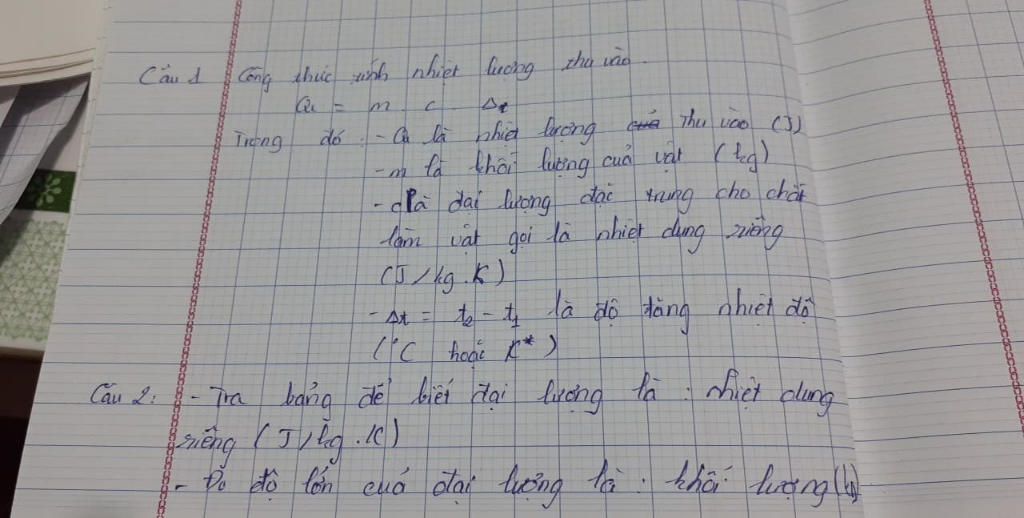 Câu 1 Công thức tính nhiệt lượng thu vào.
Q = m . c . Δt
Trong đó : - Q là nhiệt lượng thu vào (J)
- m là khối lượng của vật (kg)
- c là đại lượng đặc trưng cho chất
làm vật gọi là nhiệt dung riêng
(J/kg.K)
- Δt = t2 - t1 là độ tăng nhiệt độ
(°C hoặc K*)
Câu 2: - Tra bảng để biết đại lượng là : nhiệt dung
riêng (J/kg.K)
- Đo độ lớn của đại lượng là : khối lượng (kg)